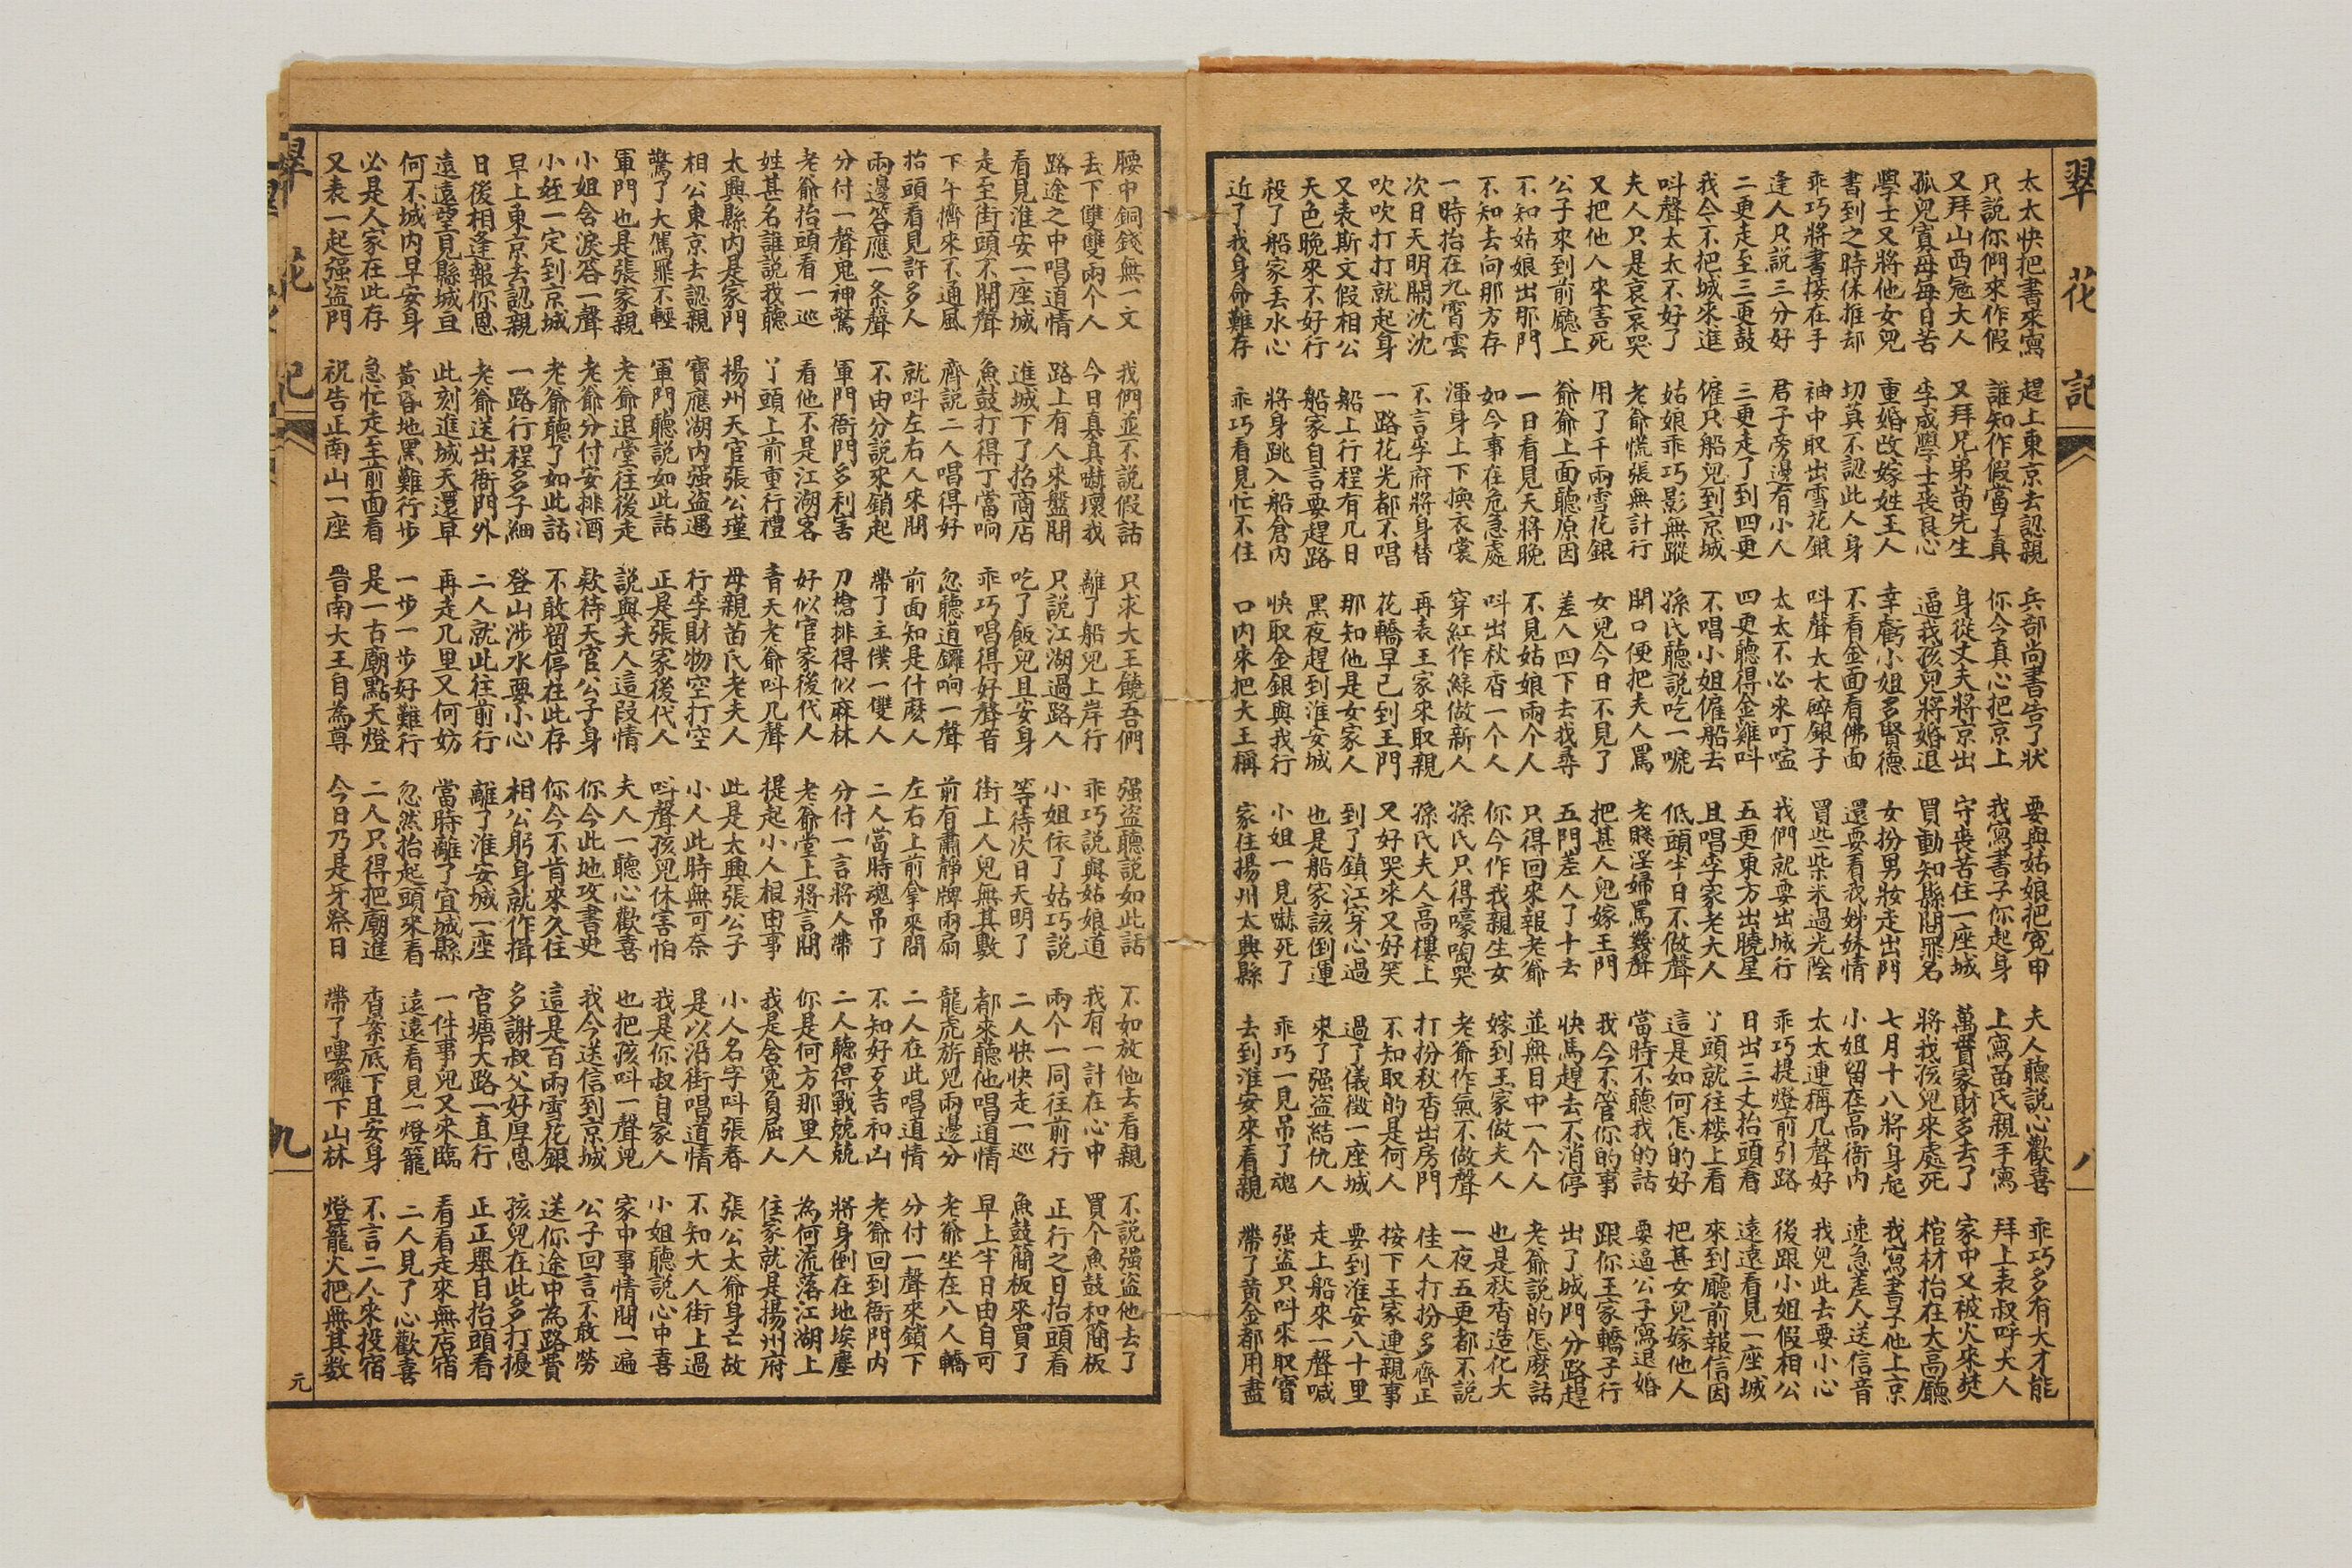 翠花記
八
太太快把書來寫 趕上東京去認親 兵部尚書告了狀 要與姑娘把冤申 夫人聽説心歡喜 乖巧多有大才能
只説你們來作假 誰知作假當了真 你今真心把京上 我寫書子你起身 上寫苗氏親手寫 拜上表叔呼大人
又拜山西冠大人 又拜兄弟苗先生 身從丈夫將京出 守喪苦住一座城 萬貫家財多去了 家中又被火來焚
孤兒寡母每日苦 李成學士丧良心 逼我孩兒將婚退 買動知縣問罪名 將我孩兒來處死 棺材抬在大高廳
學士又將他女兒 重婚改嫁姓王人 幸虧小姐多賢德 女扮男妝走出門 七月十八將身起 我寫書子他上京
書到之時休推却 切莫不認此人身 不看金面看佛面 還要看我姊妹情 小姐留在高衙內 速急差人送信音
乖巧將書接在手 袖中取出雪花銀 叫聲太太碎銀子 買些柴米過光陰 太太連稱几聲好 我兒此去要小心
逢人只説三分好 君子旁邊有小人 太太不必來叮嚀 我們就要出城行 乖巧提燈前引路 後跟小姐假相公
二更走至三更鼓 三更走了到四更 四更聽得金雞叫 五更東方出曉星 日出三丈抬頭看 遠遠看見一座城
我今不把城來進 僱只船兒到京城 不唱小姐僱船去 且唱李家老大人 丫頭就往楼上看 來到廳前報信因
叫聲太太不好了 姑娘乖巧影無蹤 孫氏聽説吃一嚇 低頭半日不做聲 這是如何怎的好 把甚女兒嫁他人
夫人只是哀哀哭 老爺慌張無計行 開口便把夫人罵 老賤淫婦罵幾聲 當時不聽我的話 要逼公子寫退婚
又把他人來害死 用了千兩雪花銀 女兒今日不見了 把甚人兒嫁王門 我今不管你的事 跟你王家轎子行
公子來到前廳上 爺爺上面聽原因 差人四下去找尋 五門差人了十去 快馬趕去不消停 出了城門分路趕
不知姑娘出那門 一日看見天將晚 不見姑娘兩个人 只得回來報老爺 並無日中一个人 老爺説的怎麽話
不知去向那方存 如今事在危急處 叫出秋香一个人 你今作我親生女 嫁到王家做夫人 也是秋香造化大
一時抬在九霄雲 渾身上下換衣裳 穿紅作綠做新人 孫氏只得嚎啕哭 老爺作氣不做聲 一夜五更都不説
次日天明鬧沈沈 不言李府將身替 再表王家來取親 孫氏夫人高樓上 打扮秋香出房門 佳人打扮多齊正
吹吹打打就起身 一路花光都不唱 花轎早已到王門 又好哭來又好笑 不知取的是何人 按下王家連親事
又表斯文假相公 船上行程有几日 那知他是女家人 到了鎮江穿心過 過了儀徵一座城 要到淮安八十里
天色晚來不好行 船家自言要趕路 黑夜趕到淮安城 也是船家該倒運 來了强盜結仇人 走上船來一聲喊
殺了船家丟水心 將身跳入船倉內 快取金銀與我行 小姐一見嚇死了 乖巧一見吊了魂 强盜只叫來取寶
近了我身命難存 乖巧看見忙不住 口內來把大王稱 家住揚州太興縣 去到淮安來看親 帶了黃金都用盡
腰中銅錢無一文 我們並不説假話 只求大王饒吾們 强盜聽説如此話 不如放他去看親 不説强盜他去了
丟下雙雙兩个人 今日真真嚇壞我 離了船兒上岸行 乖巧説與姑娘道 我有一計在心中 買个魚鼓和簡板
路途之中唱道情 路上有人來盤問 只説江湖過路人 小姐依了姑巧説 兩个一同往前行 正行之日抬頭看
看見淮安一座城 進城下了招商店 吃了飯兒且安身 等待次日天明了 二人快走一巡 魚鼓簡板來買了
走至街頭不開聲 魚鼓打得丁當响 乖巧唱得好聲音 街上人兒無其數 都來聽他唱道情 早上半日由自可
下午懠來不通風 齊説二人唱得好 忽聽道鑼响一聲 前有肅靜牌兩扇 龍虎旂兒兩邊分 老爺坐在八人轎
抬頭看見許多人 就叫左右人來問 前面知是什麽人 左右上前拿來問 二人在此唱道情 分付一聲來鎖下
兩邊答應一条聲 不由分説來鎖起 帶了主僕一雙人 二人當時魂吊了 不知好歹吉和凶 老爺回到衙門內
分付一聲鬼神驚 軍門衙門多利害 刀槍排得似麻林 分付一言將人帶 二人聽得戰兢兢 將身倒在地埃塵
老爺抬頭看一巡 看他不是江湖客 好似官家後代人 老爺堂上將言問 你是何方那里人 為何流落江湖上
姓甚名誰説我聽 丫頭上前重行禮 青天老爺叫几聲 提起小人根由事 我是含冤負屈人 住家就是揚州府
太興縣內是家門 揚州天官張公瑾 母親苗氏老夫人 此是太興張公子 小人名字叫張春 張公太爺身亡故
相公東京去認親 寶應湖內强盜遇 行李財物空打空 小人此時無可奈 是以沿街唱道情 不知大人街上過
驚了大駕罪不輕 軍門聽説如此話 正是張家後代人 叫聲孩兒休害怕 我是你叔自家人 小姐聽説心中喜
軍門也是張家親 老爺退堂往後走 説與夫人這段情 夫人一聽心歡喜 也把孩叫一聲兒 家中事情問一遍
小姐含淚答一聲 老爺分付安排酒 欵待天官公子身 你今此地攻書史 我今送信到京城 公子回言不敢勞
小姪一定到京城 老爺聽了如此話 不敢留停在此存 你今不肯來久住 這是百兩雪花銀 送你途中為路費
早上東京去認親 一路行程多子細 登山涉水要小心 相公躬身就作揖 多謝叔父好厚恩 孩兒在此多打擾
日後相逢報你恩 老爺送出衙門外 二人就此往前行 離了淮安城一座 官塘大路一直行 正正舉目抬頭看
遠遠望見縣城亘 此刻進城天還早 再走几里又何妨 當時離了宜城縣 一件事兒又來臨 看看走來無店宿
何不城內早安身 黃昏地黑難行步 一步一步好難行 忽然抬起頭來看 遠遠看見一燈籠 二人見了心歡喜
必是人家在此存 急忙走至前面看 是一古廟點天燈 二人只得把廟進 香案底下且安身 不言二人來投宿
又表一起强盜門 祝告正南山一座 晉南大王自為尊 今日乃是牙祭日 帶了嘍囉下山林 燈籠火把無其数
翠花記
九
元